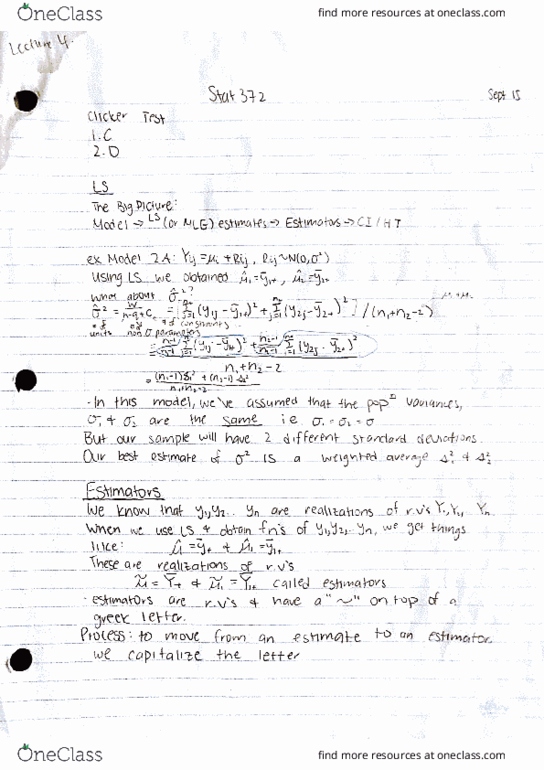 OneClass find more resources at oneclass.com
Lecture 4.
Stat 372 Sept 15
Clicker Test
1. C
2. D
LS
The Big Picture:
Model → LS (or MLE) estimates → Estimators → CI / HT
ex Model 2A: Yij = μi + Rij, Rij ~ N(0, σ²)
Using LS we obtained μ̂1 = ȳ1+, μ̂2 = ȳ2+
What about σ̂²?
σ̂² = W/(n-q+c) = [Σ(y1j - ȳ1+)² + Σ(y2j - ȳ2+)²] / (n1+n2-2)
# of # of # of constraints
units non σ parameters
= (n1-1)/(n1-1) Σ(y1j - ȳ1+)² + (n2-1)/(n2-1) Σ(y2j - ȳ2+)²
n1 + n2 - 2
= (n1-1)s1² + (n2-1)s2²
n1+n2-2
· In this model, we've assumed that the popⁿ variances,
σ1 & σ2 are the same i.e σ1 = σ2 = σ
But our sample will have 2 different standard deviations.
Our best estimate of σ² is a weighted average s1² & s2²
Estimators
We know that y1, y2.. yn are realizations of r.v's Y1, Y2, Yn
When we use LS & obtain fn's of y1, y2, yn, we get things
like: μ̂ = ȳ+ & μ̂1 = ȳ1+
These are realizations of r.v's
μ̃ = Ȳ+ & μ̃1 = Ȳ1+ called estimators
· estimators are r.v's & have a "~" on top of a
greek letter.
Process: to move from an estimate to an estimator
we capitalize the letter
OneClass find more resources at oneclass.com